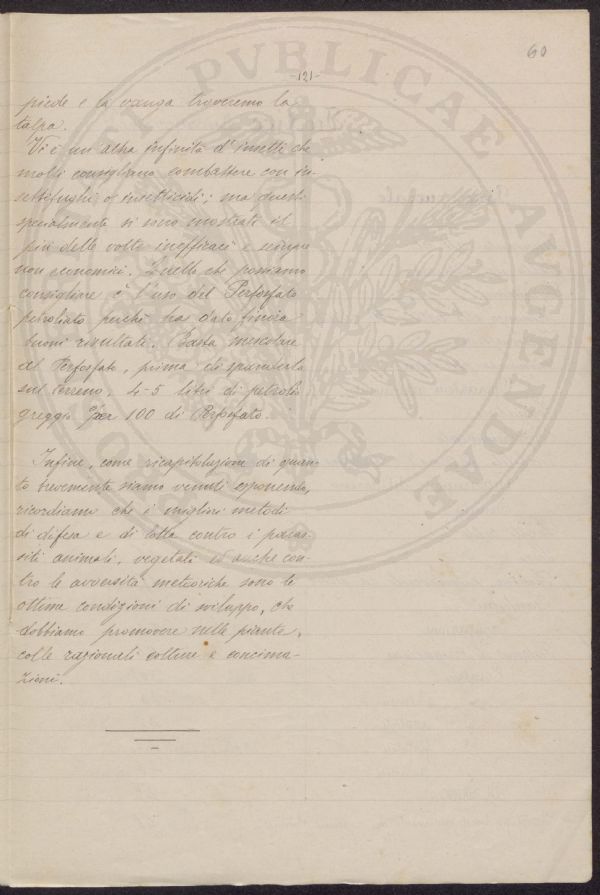 60
-121-
piede e la vanga troveremo la
talpa.
Vi è un altra infinità d'insetti che
molti consigliano combattere con in-
settifughi o insetticidi; ma questi
specialmente si sono mostrati il
più delle volte inefficaci e sempre
non economici. Quello che possiamo
consigliare è l'uso del Perfosfato
petroliato perchè ha dato finora
buoni risultati. Basta mescolare
al Perfosfato, prima di spanderlo
sul terreno, 4-5 litri di petrolio
greggio per 100 di Perfosfato.
Infine, come ricapitolazione di quan-
to brevemente siamo venuti esponendo,
ricordiamo che i migliori metodi
di difesa e di lotta contro i paras-
siti animali, vegetali ed anche con-
tro le avversità meteoriche sono le
ottime condizioni di sviluppo, che
dobbiamo promovere nelle piante,
colle razionali colture e concima-
zioni.
PVBLICAE
AVGENDAE